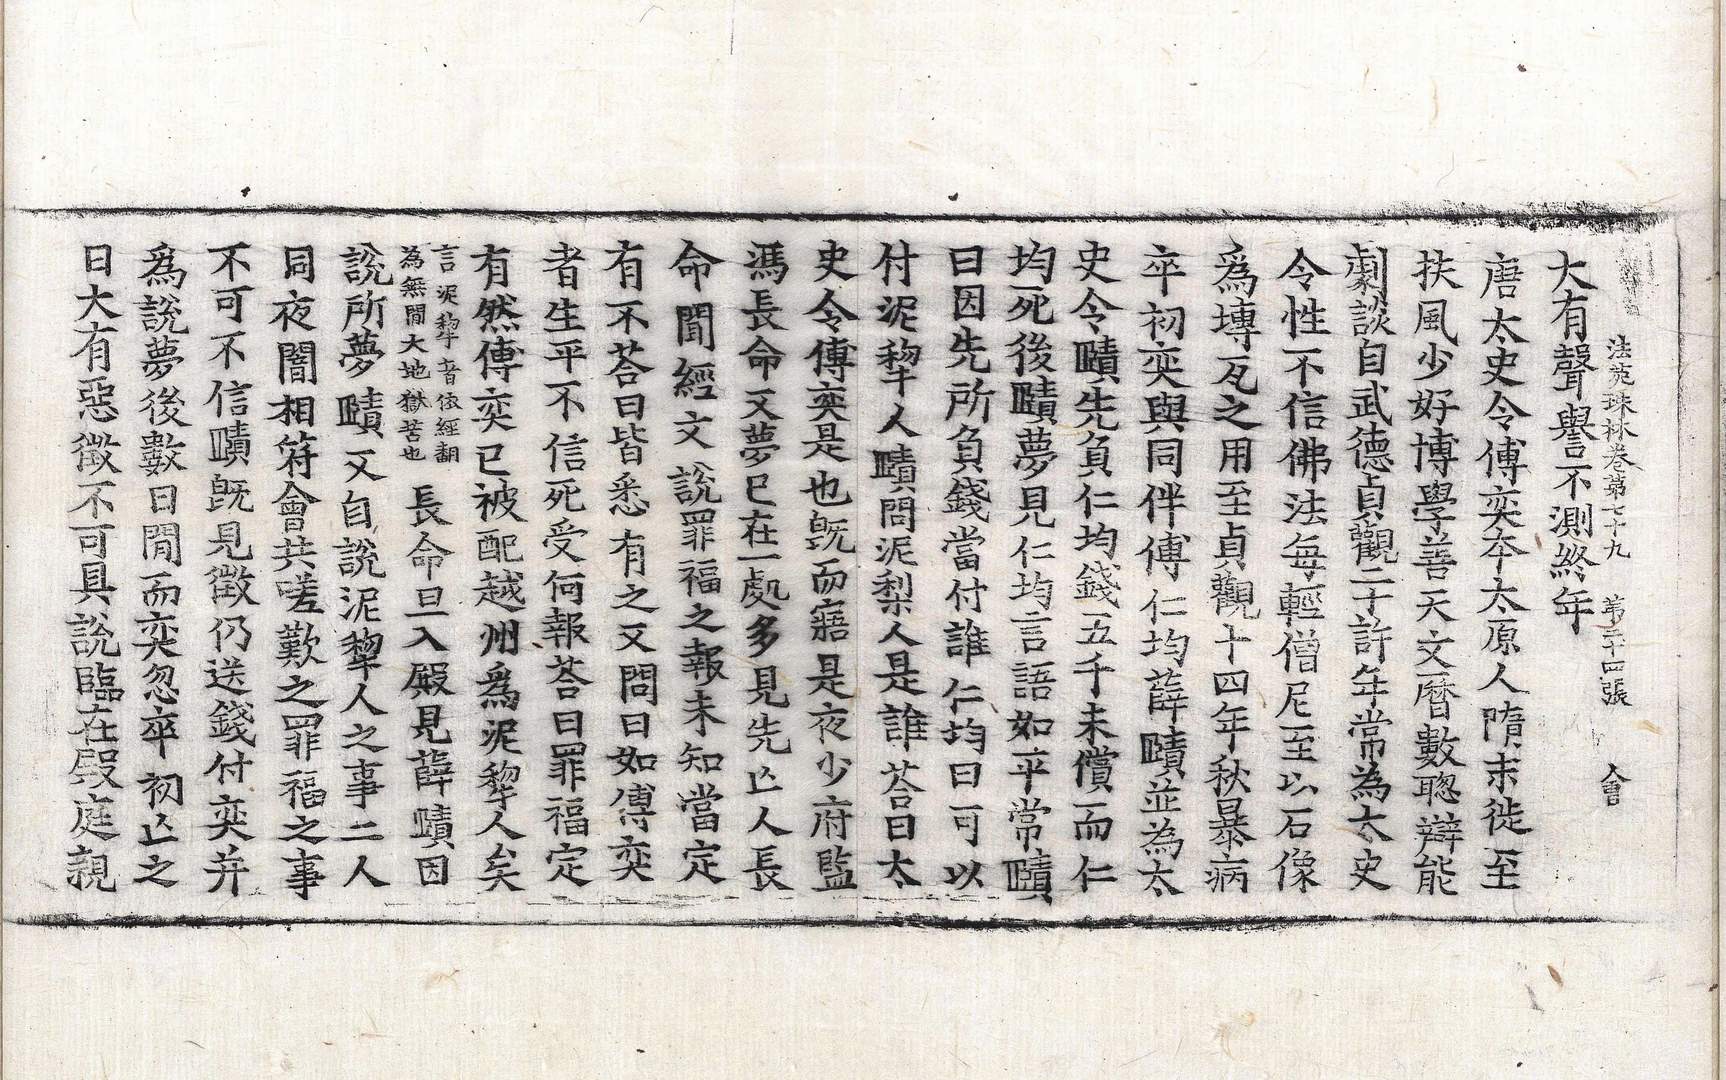 法苑珠林卷第七十九　第二十四張　會
大有聲譽不測終年
唐太史令傅奕本太原人隋末徙至
扶風少好博學善天文曆數聦辯能
劇談自武德貞觀二十許年常為太史
令性不信佛法每輕僧尼至以石像
爲塼瓦之用至貞觀十四年秋暴病
卒初奕與同伴傅仁均薛賾並為太
史令賾先負仁均錢五千未償而仁
均死後賾夢見仁均言語如平常賾
曰因先所負錢當付誰仁均曰可以
付泥犂人賾問泥梨人是誰荅曰太
史令傅奕是也旣而寤是夜少府監
馮長命又夢已在一處多見先亡人長
命聞經文說罪福之報未知當定
有不荅曰皆悉有之又問曰如傅奕
者生平不信死受何報荅曰罪福定
有然傅奕已被配越州爲泥犂人矣
言泥犂者依經翻
為無間大地獄苦也
長命旦入殿見薛賾因
說所夢賾又自說泥犂人之事二人
同夜闇相符會共嗟歎之罪福之事
不可不信賾旣見徵仍送錢付奕并
爲說夢後數日間而奕忽卒初亡之
日大有惡徵不可具說臨在殿庭親